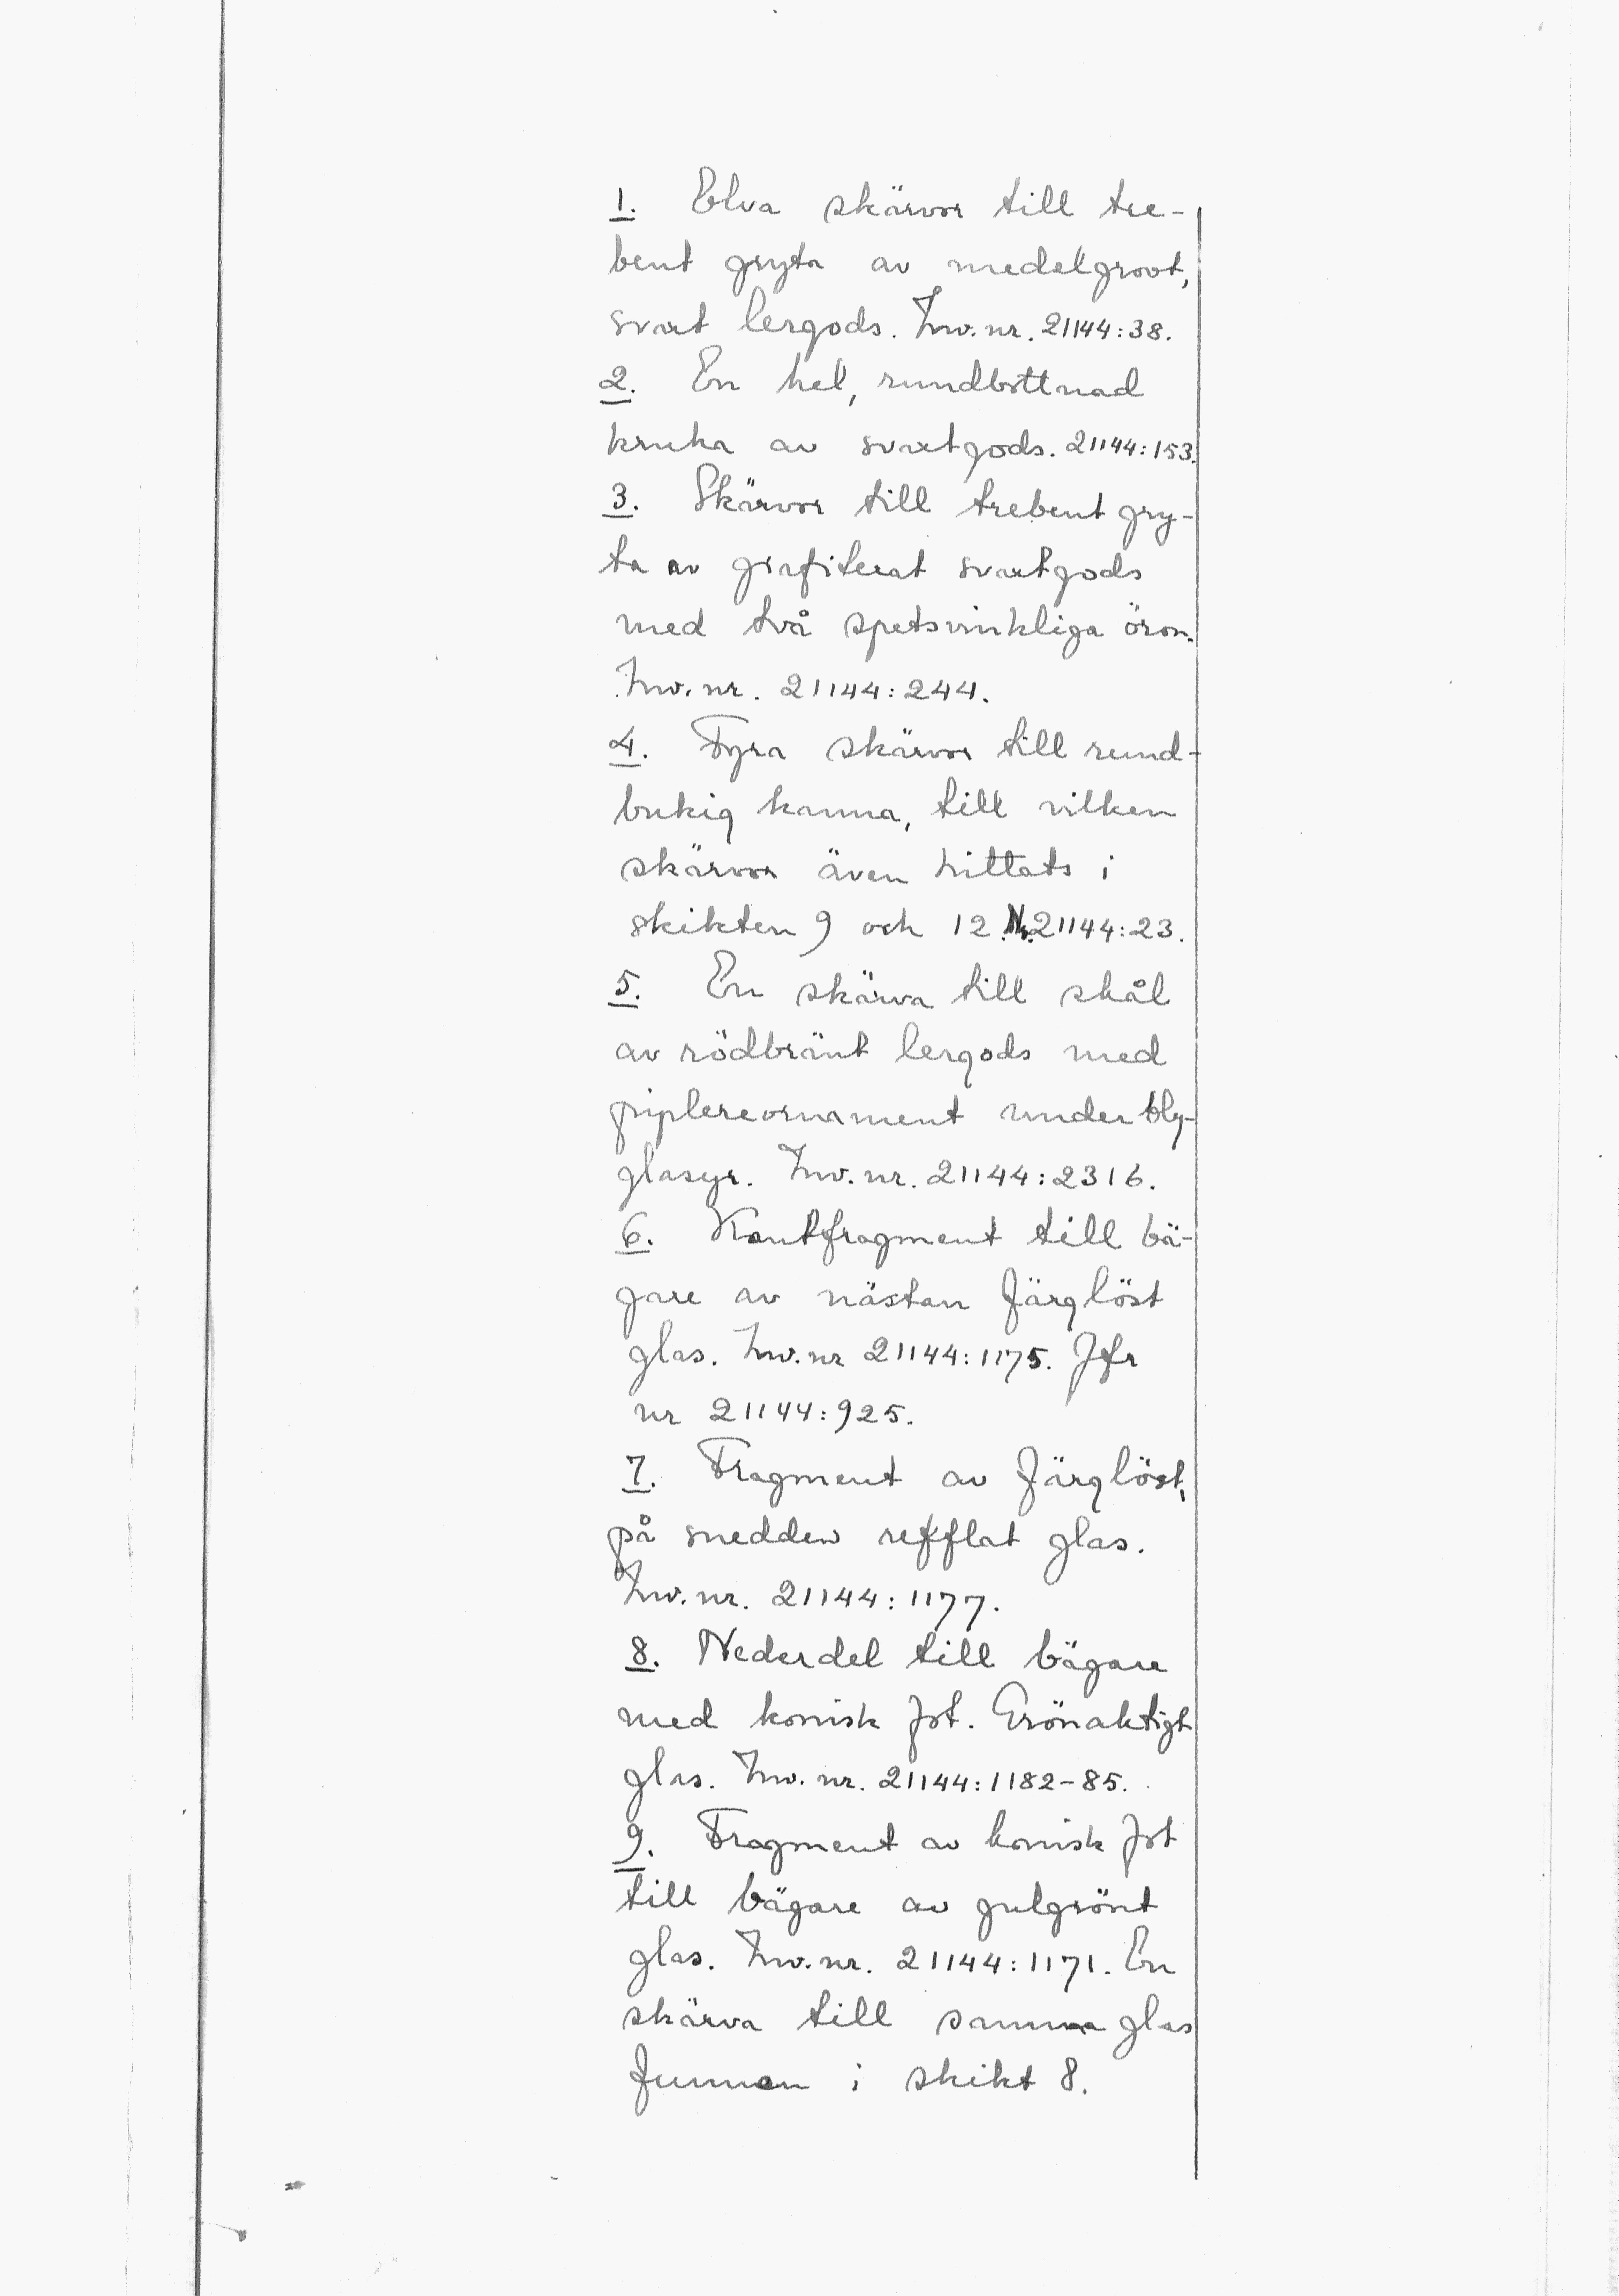 1. Elva skärvor till tre-
bent gryta av medelgrovt,
svart lergods. Inv. nr. 21144:38.
2. En hel, rundbottnad
kruka av svartgods. 21144:153.
3. Skärvor till trebent gry-
ta av grafiterat svartgods
med två spetsvinkliga öron.
Inv. nr. 21144:244.
4. Fyra skärvor till rund-
bukig kanna, till vilken
skärvor även hittats i
skikten 9 och 12. Nr. 21144:23.
5. En skärva till skål
av rödbränt lergods med
piplereornament under bly-
glasyr. Inv. nr. 21144:2316.
6. Kantfragment till bä-
gare av nästan färglöst
glas. Inv. nr 21144:1175. Jfr
nr 21144:925.
7. Fragment av färglöst,
på snedden refflat glas.
Inv. nr. 21144:1177.
8. Nederdel till bägare
med konisk fot. Grönaktigt
glas. Inv. nr. 21144:1182-85.
9. Fragment av konisk fot
till bägare av gulgrönt
glas. Inv. nr. 21144:1171. En
skärva till samma glas
funnen i skikt 8.